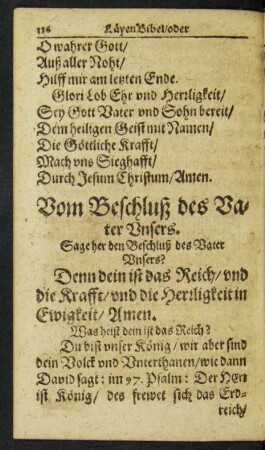 116 LäyenBibel/oder
O wahrer Gott/
Auß aller Noht/
Hilff mir am letzten Ende.
Glori Lob Ehr vnd Herzligkeit/
Sey Gott Vater vnd Sohn bereit/
Dem heiligen Geist mit Namen/
Die Göttliche Krafft/
Mach vns Sieghafft/
Durch Jesum Christum/Amen.
Vom Beschluß des Va-
ter Vnsers.
Sage her den Beschluß des Vater
Vnsers?
Denn dein ist das Reich/vnd
die Krafft/vnd die Herzligkeit in
Ewigkeit/Amen.
Was heist dein ist das Reich?
Du bist vnser König/wir aber sind
dein Volck vnd Vnterthanen/wie dann
David sagt: im 97. Psalm: Der HErr
ist König/des frewet sich das Erd-
reich/